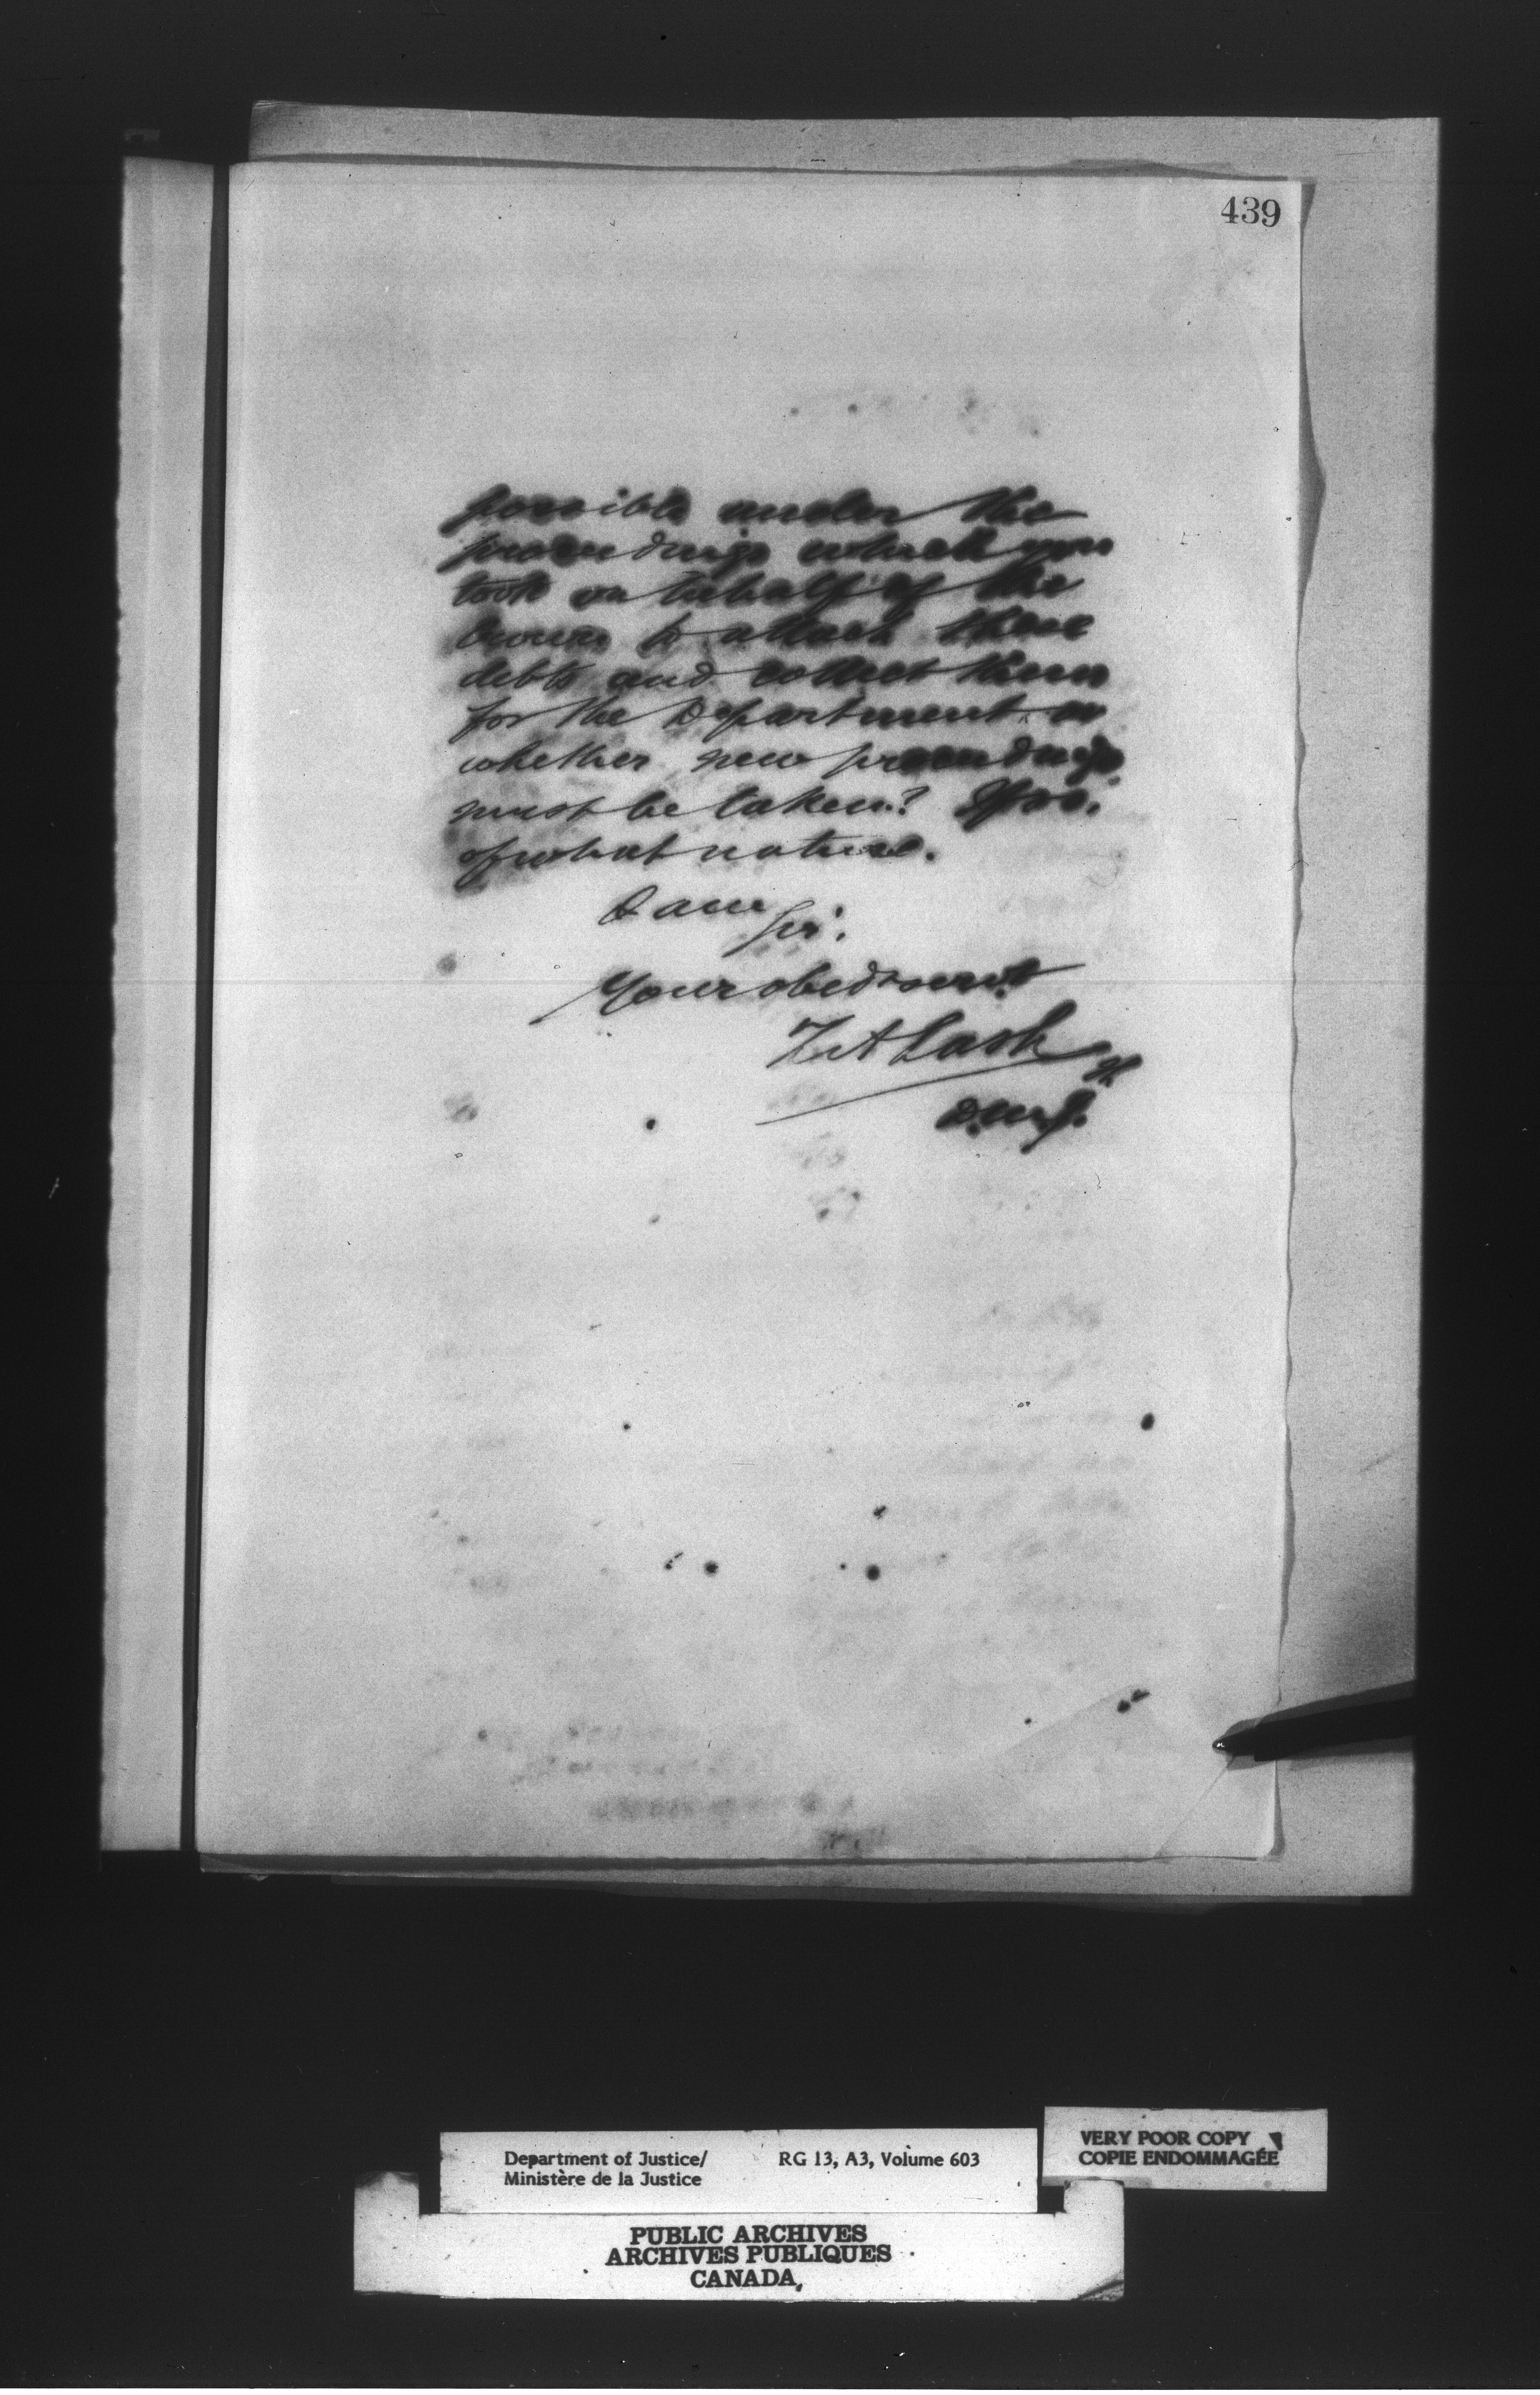 439
possible under the
proceedings which you
took on behalf of the
Crown to attach these
debts and collect them
for the Department or
whether new proceedings
must be taken? If so,
of what nature.
I am
Sir,
Your obedt servt
Z A Lash
D.M.J.
Department of Justice/
Ministère de la Justice
RG 13, A3, Volume 603
VERY POOR COPY
COPIE ENDOMMAGÉE
PUBLIC ARCHIVES
ARCHIVES PUBLIQUES
CANADA